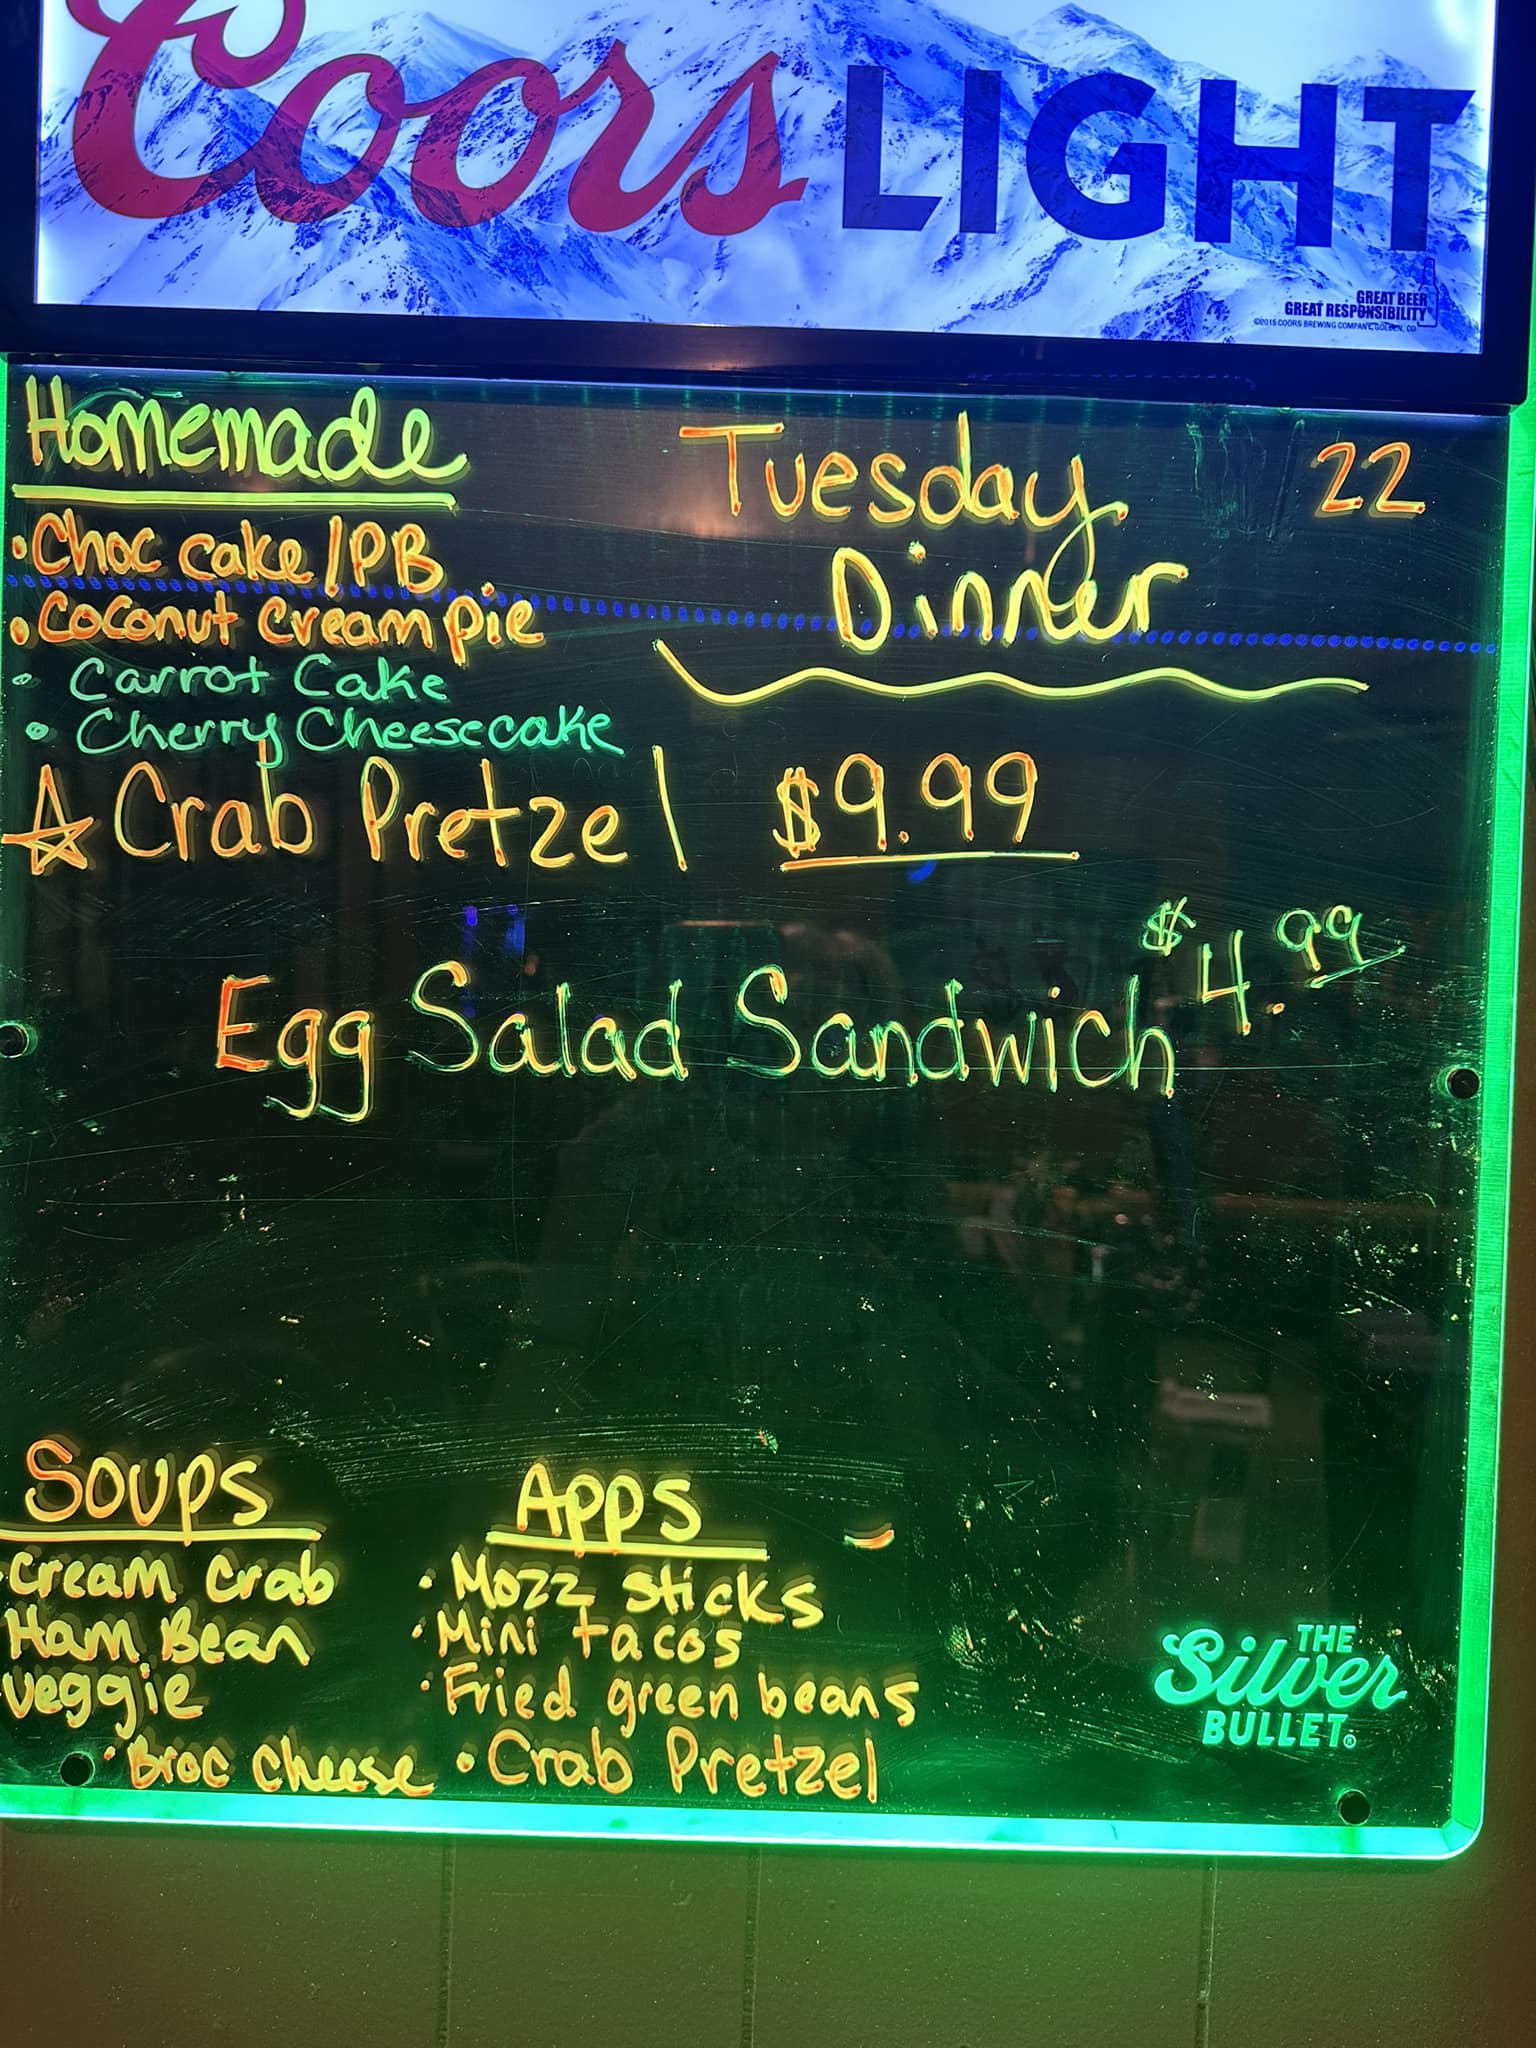 Coors LIGHT
GREAT BEER
GREAT RESPONSIBILITY
©2015 COORS BREWING COMPANY, GOLDEN, CO
Homemade
• Choc cake/PB
• Coconut Cream pie
• Carrot Cake
• Cherry Cheesecake
Tuesday 22
Dinner
☆ Crab Pretzel $9.99
Egg Salad Sandwich $4.99
Soups
• Cream Crab
Ham Bean
veggie
• Broc Cheese
Apps
• Mozz sticks
• Mini tacos
• Fried green beans
• Crab Pretzel
THE
Silver
BULLET®